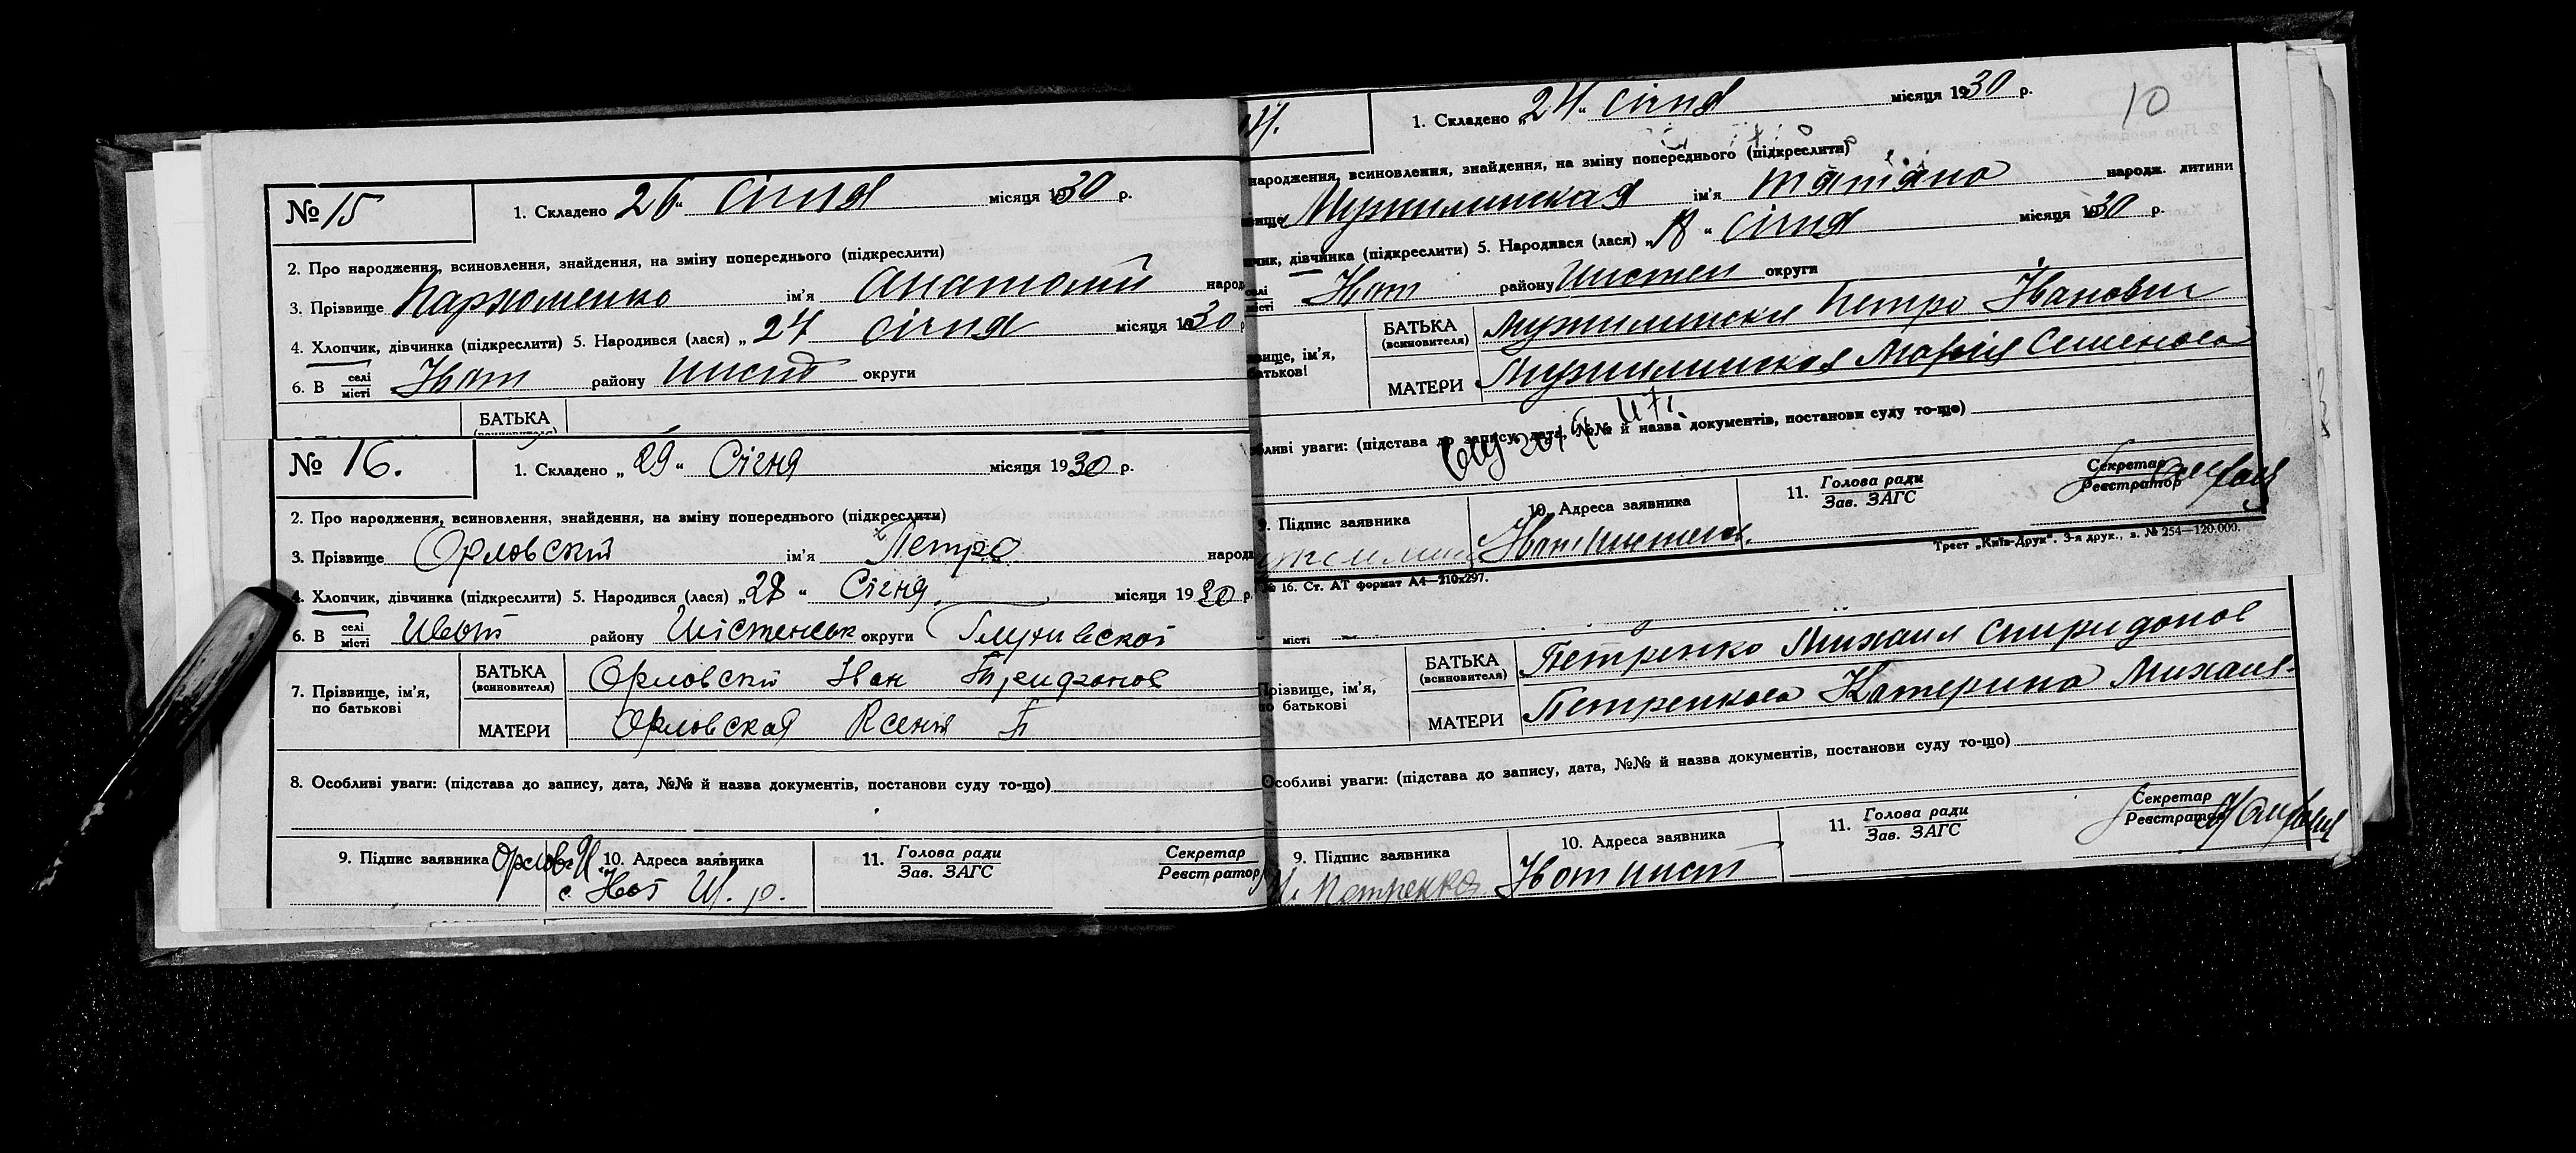 № 15
1. Складено 26 " січня місяця 1930 р.
2. Про народження, всиновлення, знайдення, на зміну попереднього (підкреслити)
3. Прізвище Пархоменко ім'я Анатолий народ
4. Хлопчик, дівчинка (підкреслити) 5. Народився (лася) „ 24 січня місяця 1930 р
6. В селі місті Ивот району Шист округи
БАТЬКА
№ 16.
1. Складено „ 29 " Січня місяця 1930 р.
2. Про народження, всиновлення, знайдення, на зміну попереднього (підкреслити)
3. Прізвище Орловский ім'я Петро народ
4. Хлопчик, дівчинка (підкреслити) 5. Народився (лася) „ 28 " Січня місяця 1930 р.
6. В селі місті Ивот району Шістенськ округи Глухивской
7. Прізвище, ім'я, по батькові
БАТЬКА (всиновителя) Орловский Иван
МАТЕРИ Орловская Ксения
8. Особливі уваги: (підстава до запису, дата, №№ й назва документів, постанови суду то-що)
9. Підпис заявника Орловс
10. Адреса заявника
с Ивот Ш. р.
11. Голова ради Зав. ЗАГС
Секретар Реєстратор
14.
1. Складено „ 24 " січня місяця 1930 р.
10
народження, всиновлення, знайдення, на зміну попереднього (підкреслити)
вище Мужилинская ім'я Татіяна народж. дитини
чик, дівчинка (підкреслити) 5. Народився (лася) „ " січня місяця 1930 р.
селі місті Ивот району Шистен округи
звище, ім'я, батькові
БАТЬКА (всиновителя) Мужилински Петро Иванович
МАТЕРИ Мужилинская Мария Семенова
бливі уваги: (підстава до запису, дата, №№ й назва документів, постанови суду то-що)
9. Підпис заявника
10. Адреса заявника
Ивот Шистенс.
11. Голова ради Зав. ЗАГС
Секретар Реєстратор
Трест „Київ-Друк". 3-я друк., з. № 254—120.000.
№ 16. Ст. АТ формат А4—210х297.
місті
Прізвище, ім'я, по батькові
БАТЬКА (всиновителя) Петренко Михаил Спиридонов
МАТЕРИ Петренкова Катерина Михаил-
Особливі уваги: (підстава до запису, дата, №№ й назва документів, постанови суду то-що)
9. Підпис заявника
Петренко
10. Адреса заявника
Ивот Шист
11. Голова ради Зав. ЗАГС
Секретар Реєстратор